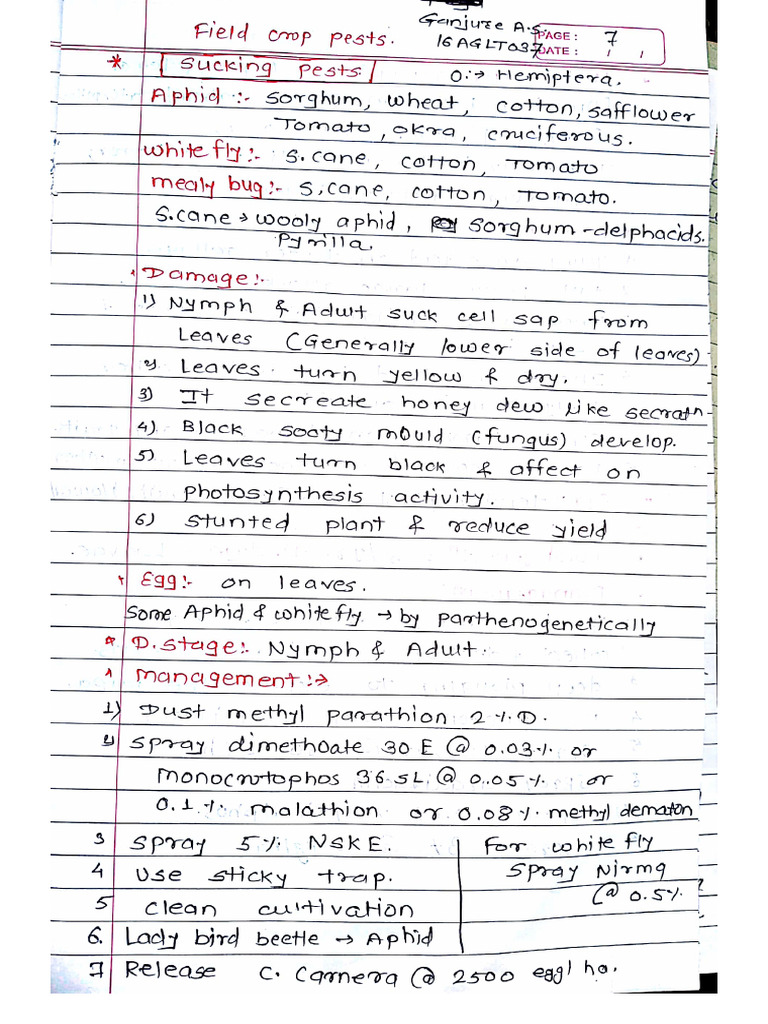 Ganjure A.S
Field crop pests.
16AGLT037
PAGE: 7
DATE: / /
* Sucking pests
O:→ Hemiptera.
Aphid :- Sorghum, wheat, cotton, safflower
Tomato, okra, cruciferous.
white fly:- S.cane, cotton, Tomato
mealy bug:- S.cane, cotton, Tomato.
S.cane → wooly aphid, Sorghum-delphacids.
Pyrilla.
Damage:-
1) Nymph & Adult suck cell sap from
Leaves (Generally lower side of leaves)
2) Leaves turn yellow & dry.
3) It secreate honey dew like secratn
4) Black sooty mould (fungus) develop.
5) Leaves turn black & affect on
photosynthesis activity.
6) stunted plant & reduce yield
* Egg:- on leaves.
Some Aphid & white fly → by parthenogenetically
* D.stage:- Nymph & Adult.
* management:→
1) Dust methyl parathion 2 % D.
2) spray dimethoate 30 E @ 0.03% or
monocrotophos 36 SL @ 0.05 % or
0.1 % malathion or 0.08 % methyl dematon
3 spray 5 % NSKE.
For white fly
4 use sticky trap.
spray Nirma
@ 0.5%
5 clean cultivation
6. Lady bird beetle → Aphid
7 Release C. Carnera @ 2500 egg/ ha.